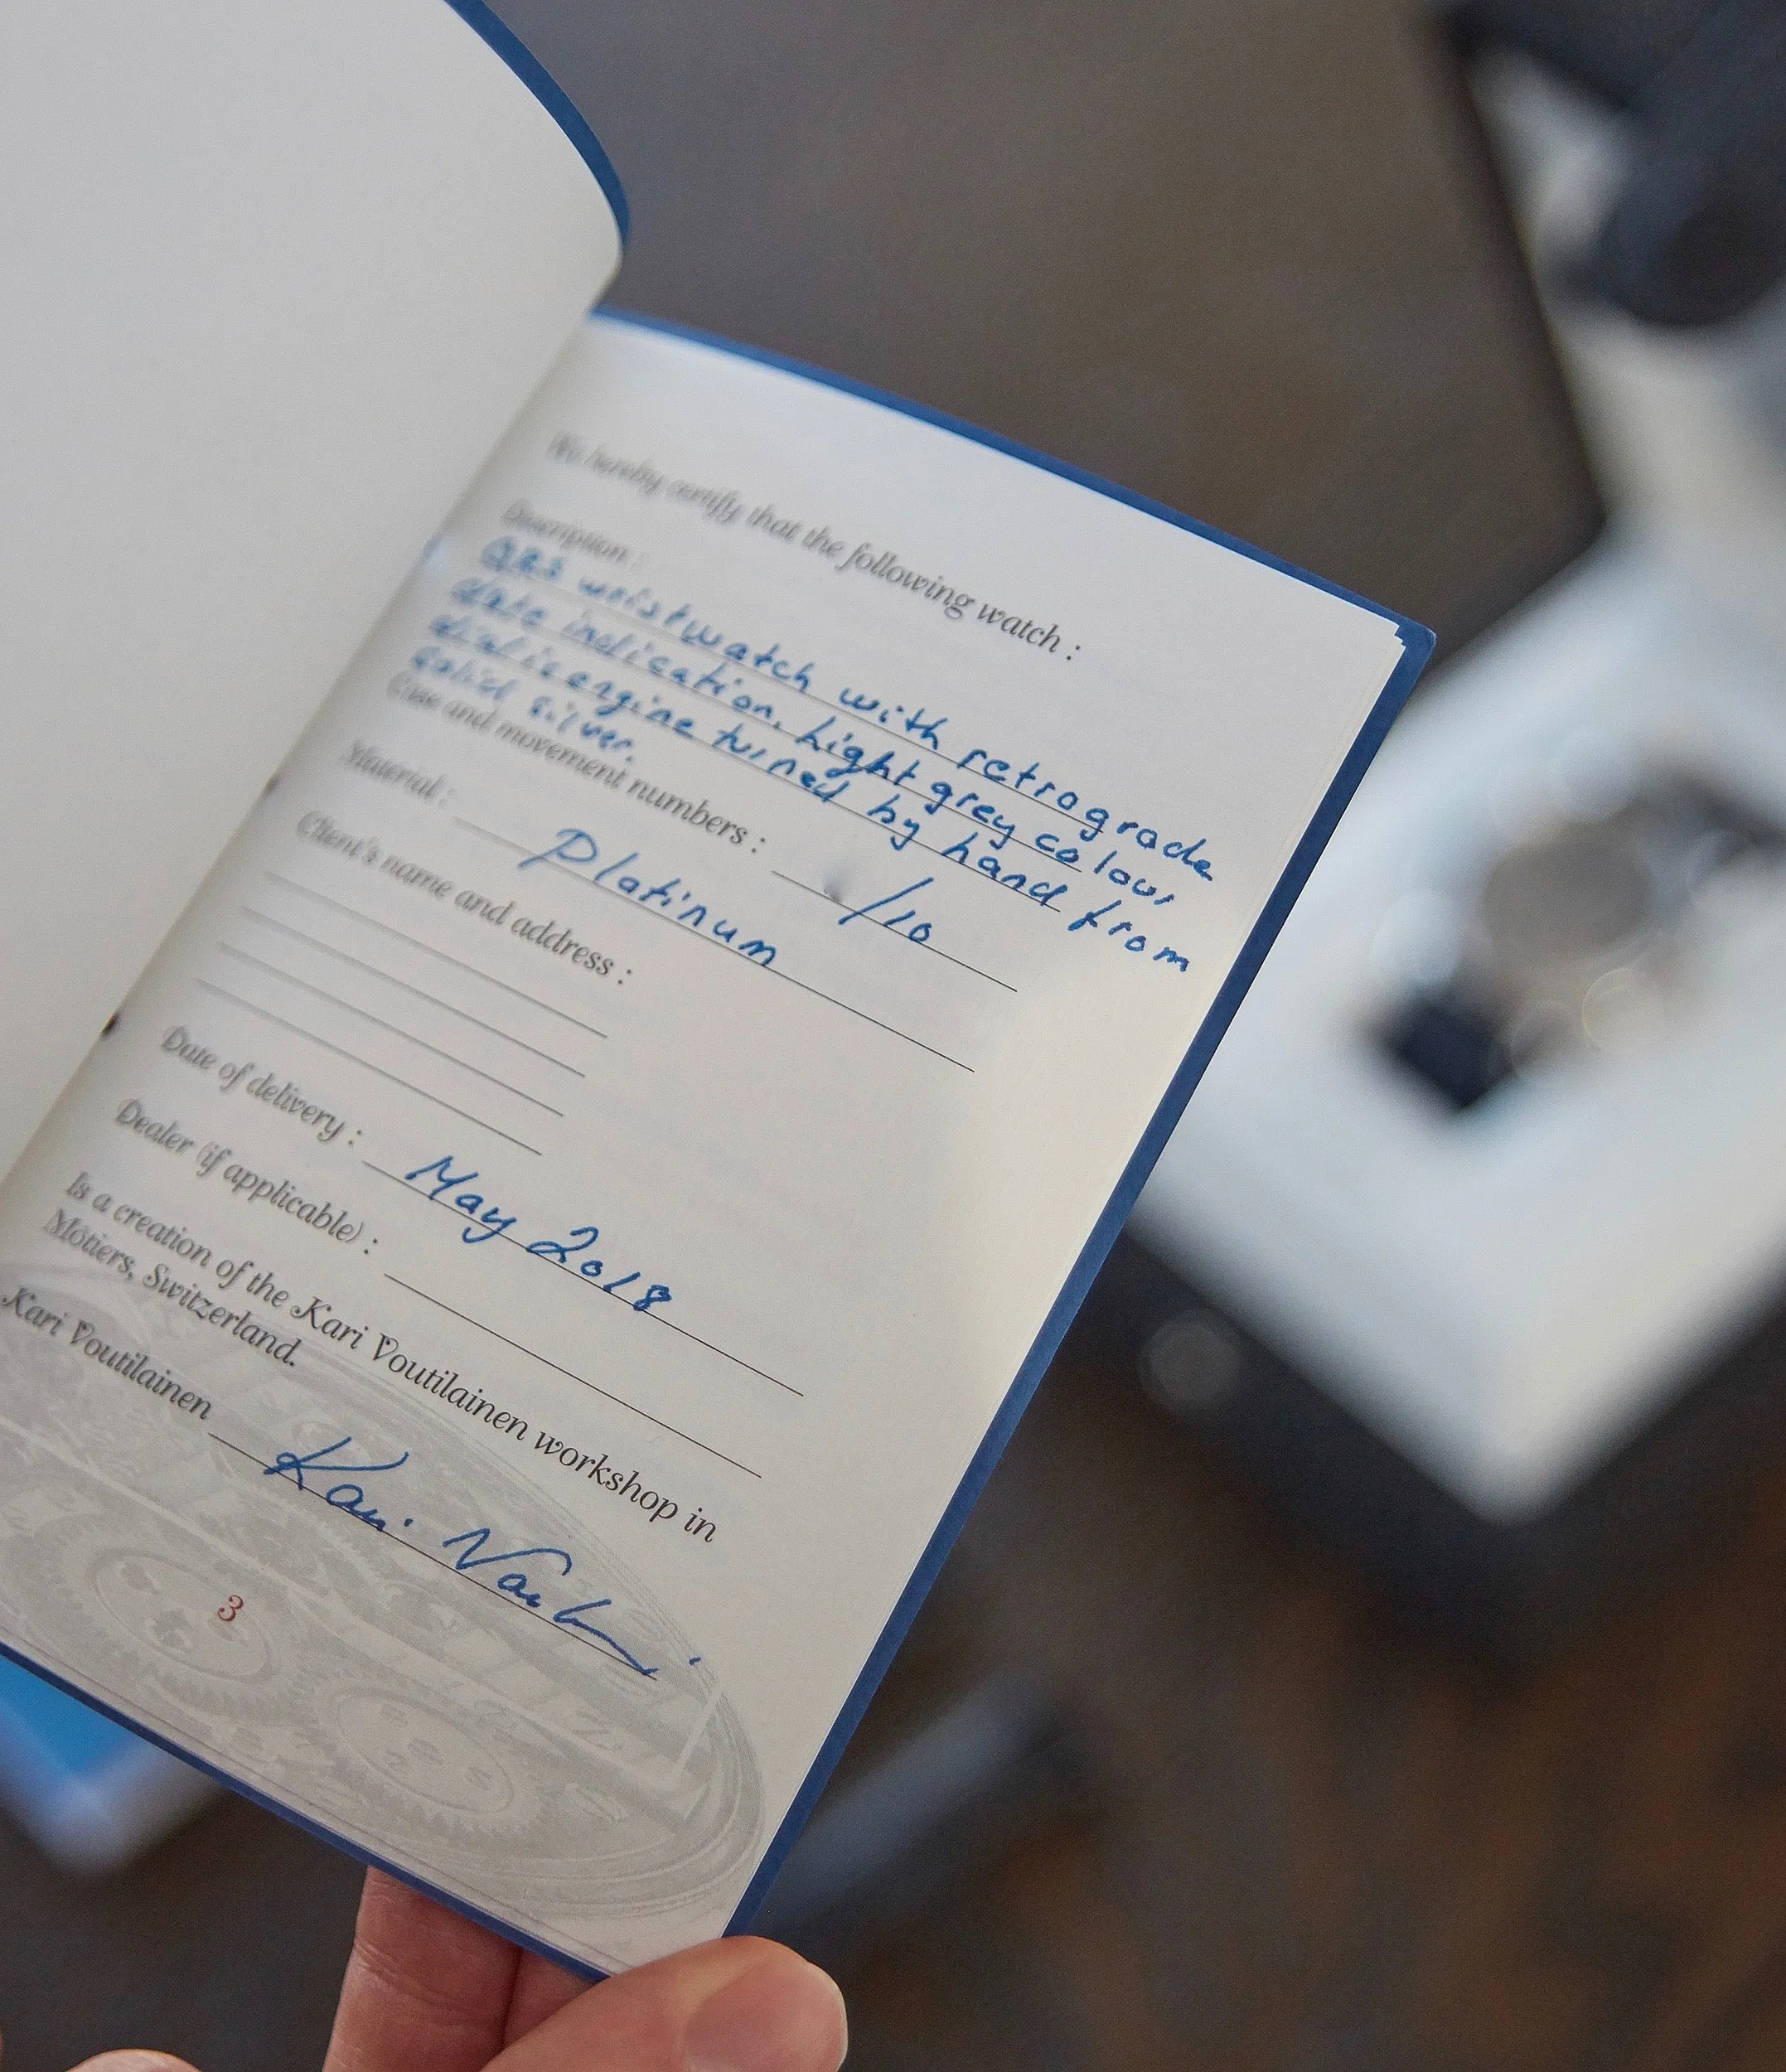 We hereby certify that the following watch :
Description :
GBS wristwatch with retrograde
date indication. Light grey colour
dial is engine turned by hand from
solid silver.
Case and movement numbers : /10
Material : Platinum
Client's name and address :
Date of delivery : May 2018
Dealer (if applicable) :
Is a creation of the Kari Voutilainen workshop in
Môtiers, Switzerland.
Kari Voutilainen
3